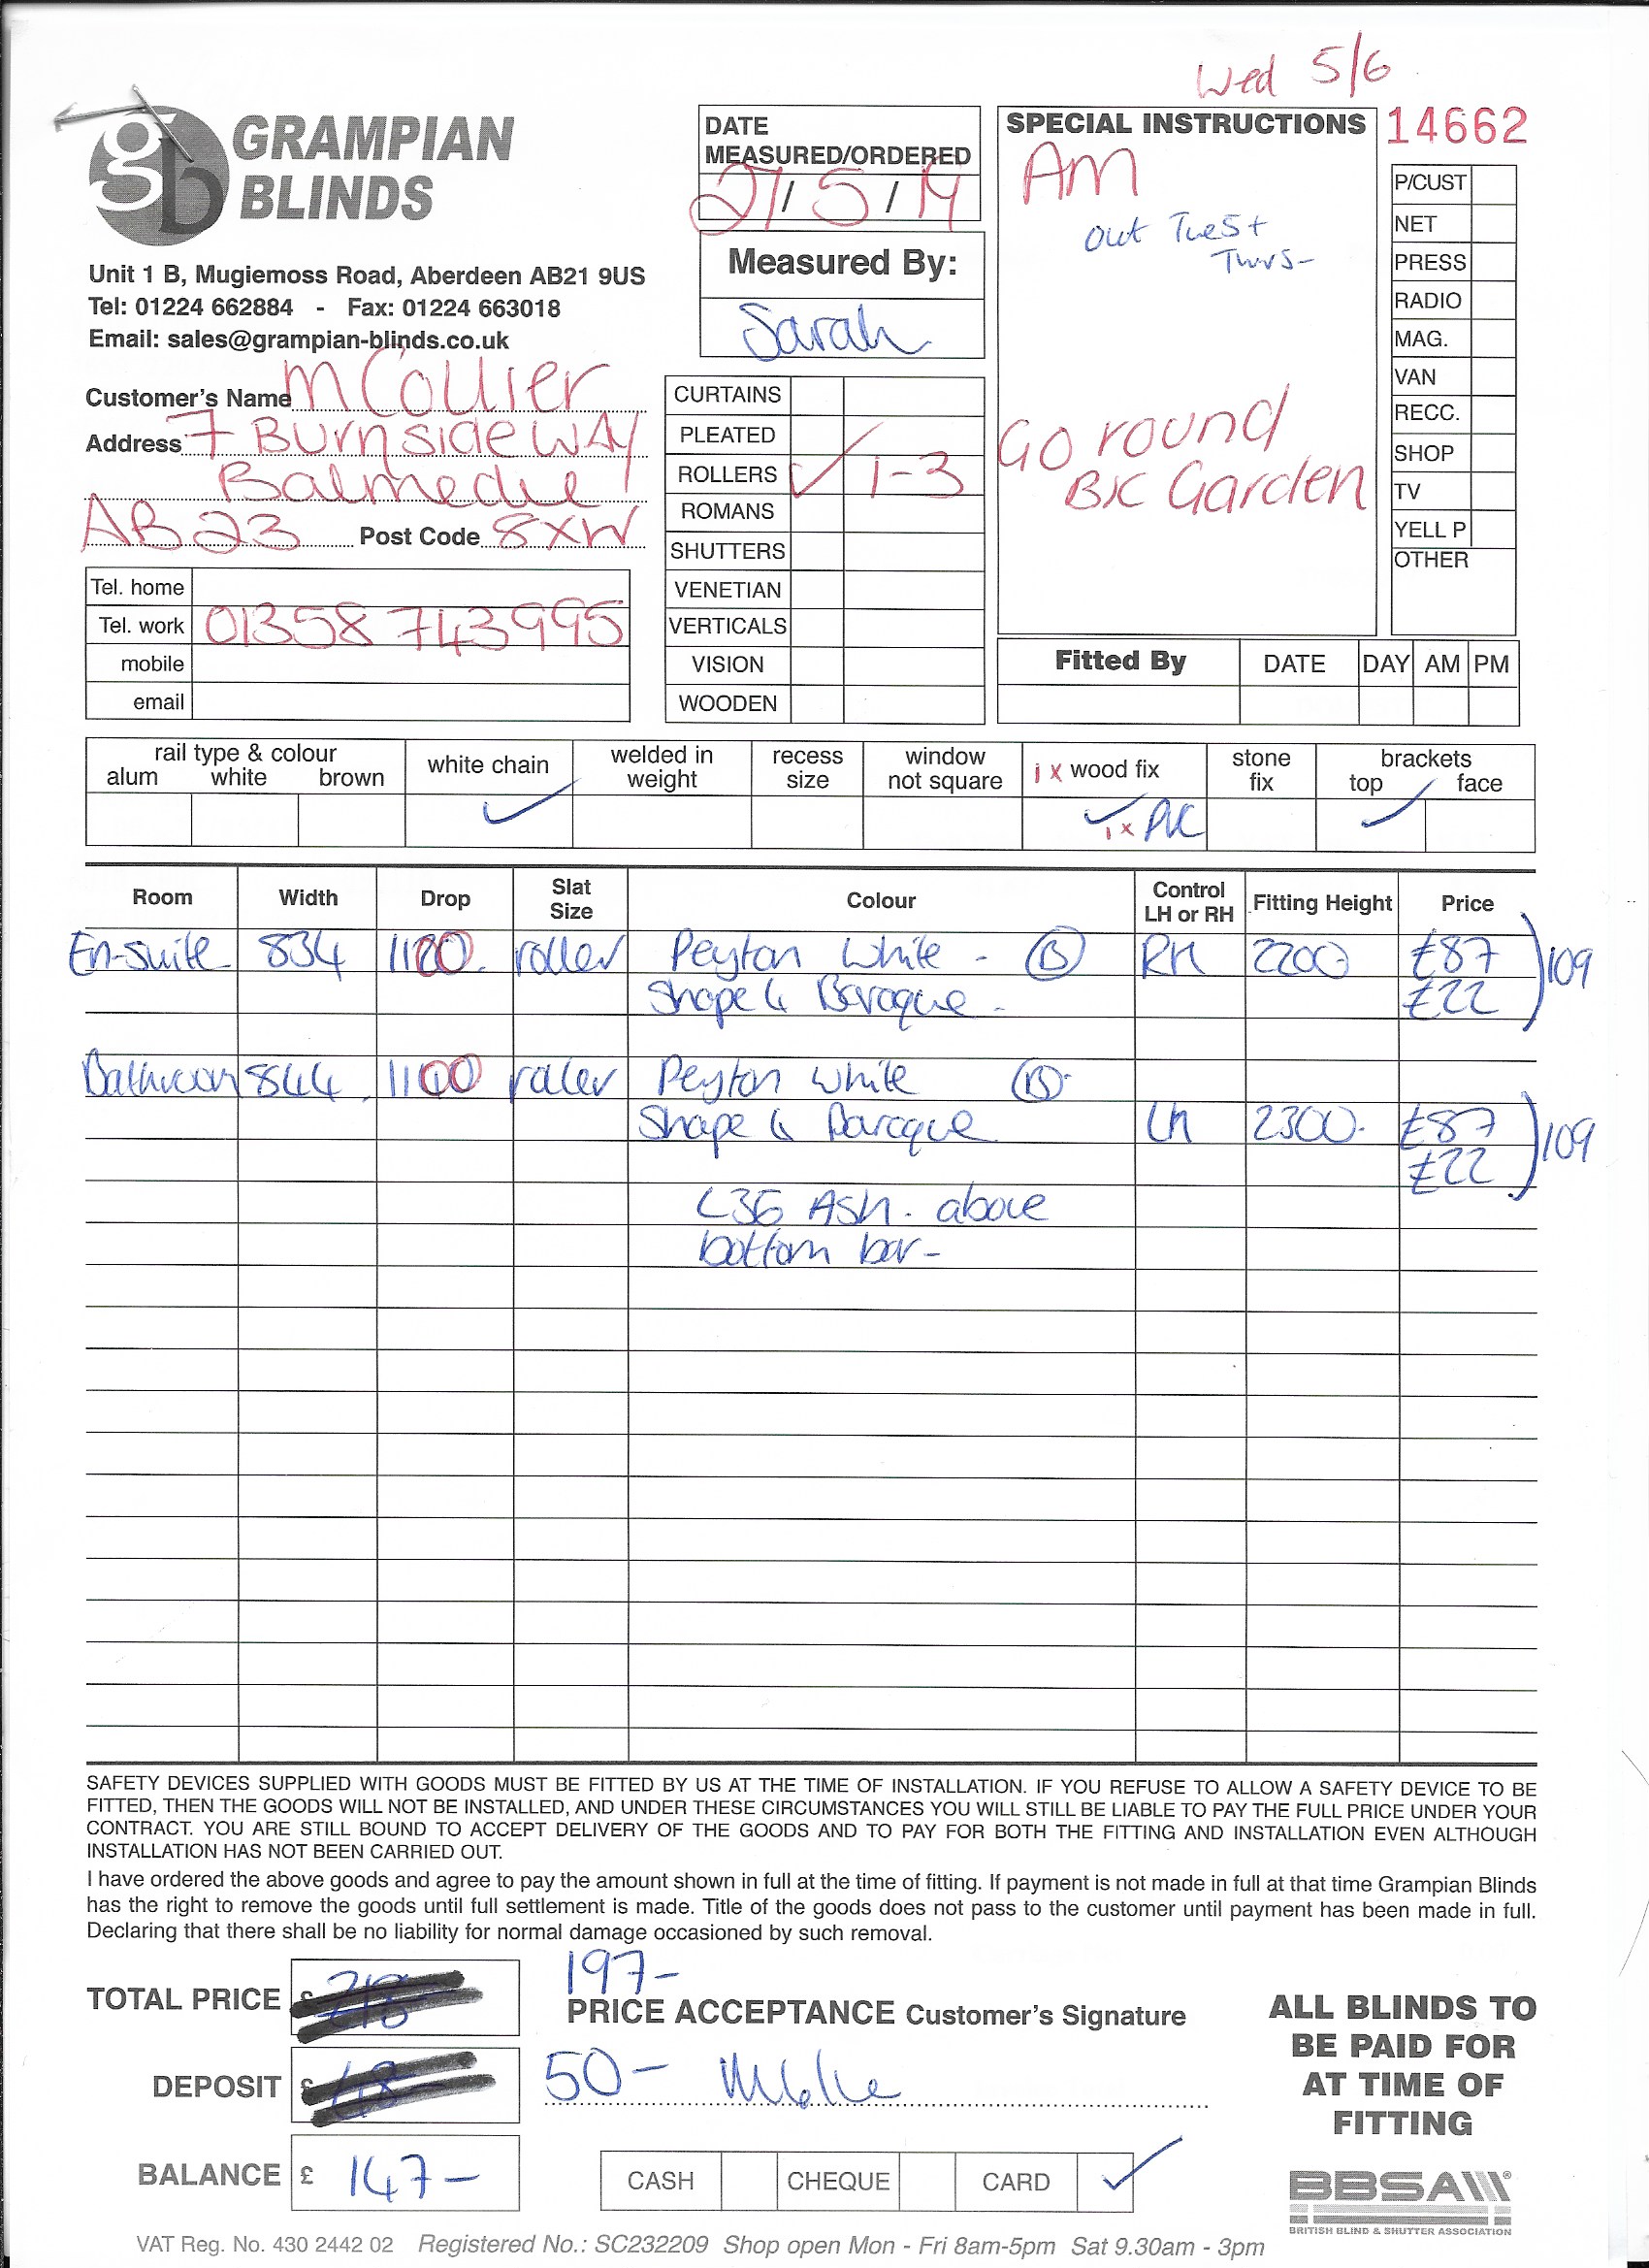 Wed 5/6
GRAMPIAN
BLINDS
Unit 1 B, Mugiemoss Road, Aberdeen AB21 9US
Tel: 01224 662884 - Fax: 01224 663018
Email: sales@grampian-blinds.co.uk
DATE
MEASURED/ORDERED
27/5/19
Measured By:
Sarah
SPECIAL INSTRUCTIONS
AM
out Tues +
Thurs-
Go round
BK Garden
14662
P/CUST
NET
PRESS
RADIO
MAG.
VAN
RECC.
SHOP
TV
YELL P
OTHER
Customer's Name M Collier
Address 7 Burnside Way
Balmedie
AB23 Post Code 8XW
Tel. home
Tel. work 01358 743995
mobile
email
CURTAINS
PLEATED
ROLLERS ✓ 1-3
ROMANS
SHUTTERS
VENETIAN
VERTICALS
VISION
WOODEN
Fitted By DATE DAY AM PM
rail type & colour
alum white brown
white chain ✓
welded in weight
recess size
window not square
1 x wood fix
✓ 1 x PVC
stone fix
brackets
top ✓ face
Room Width Drop Slat Size Colour Control LH or RH Fitting Height Price
En-suite 834 1100 roller Peyton White - (B) RH 2200 £87 ) 109
Shape 4 Baroque - £22
Bathroom 844 1100 roller Peyton White (B)
Shape 4 Baroque LH 2300 £87 ) 109
£22
L36 Ash. above
bottom bar-
SAFETY DEVICES SUPPLIED WITH GOODS MUST BE FITTED BY US AT THE TIME OF INSTALLATION. IF YOU REFUSE TO ALLOW A SAFETY DEVICE TO BE
FITTED, THEN THE GOODS WILL NOT BE INSTALLED, AND UNDER THESE CIRCUMSTANCES YOU WILL STILL BE LIABLE TO PAY THE FULL PRICE UNDER YOUR
CONTRACT. YOU ARE STILL BOUND TO ACCEPT DELIVERY OF THE GOODS AND TO PAY FOR BOTH THE FITTING AND INSTALLATION EVEN ALTHOUGH
INSTALLATION HAS NOT BEEN CARRIED OUT.
I have ordered the above goods and agree to pay the amount shown in full at the time of fitting. If payment is not made in full at that time Grampian Blinds
has the right to remove the goods until full settlement is made. Title of the goods does not pass to the customer until payment has been made in full.
Declaring that there shall be no liability for normal damage occasioned by such removal.
TOTAL PRICE £ 218 197-
PRICE ACCEPTANCE Customer's Signature
DEPOSIT £ 50-
BALANCE £ 147-
CASH CHEQUE CARD ✓
ALL BLINDS TO
BE PAID FOR
AT TIME OF
FITTING
BBSA
BRITISH BLIND & SHUTTER ASSOCIATION
VAT Reg. No. 430 2442 02 Registered No.: SC232209 Shop open Mon - Fri 8am-5pm Sat 9.30am - 3pm